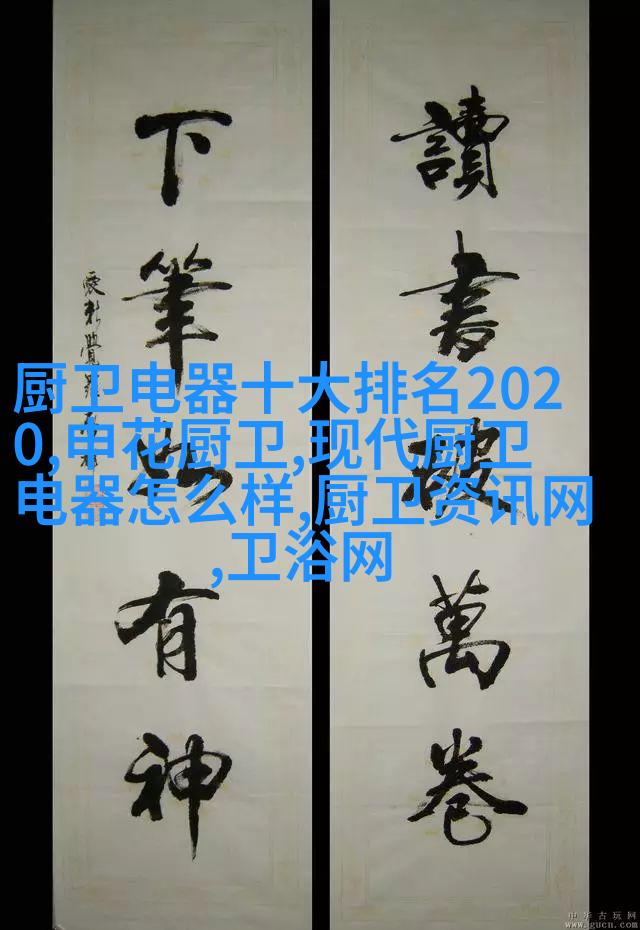 讀書破萬卷
下筆如有神
厨卫电器十大排名202
0,申花厨卫,现代厨卫
电器怎么样,厨卫资讯网
,卫浴网
中华古玩网
www.gucn.com